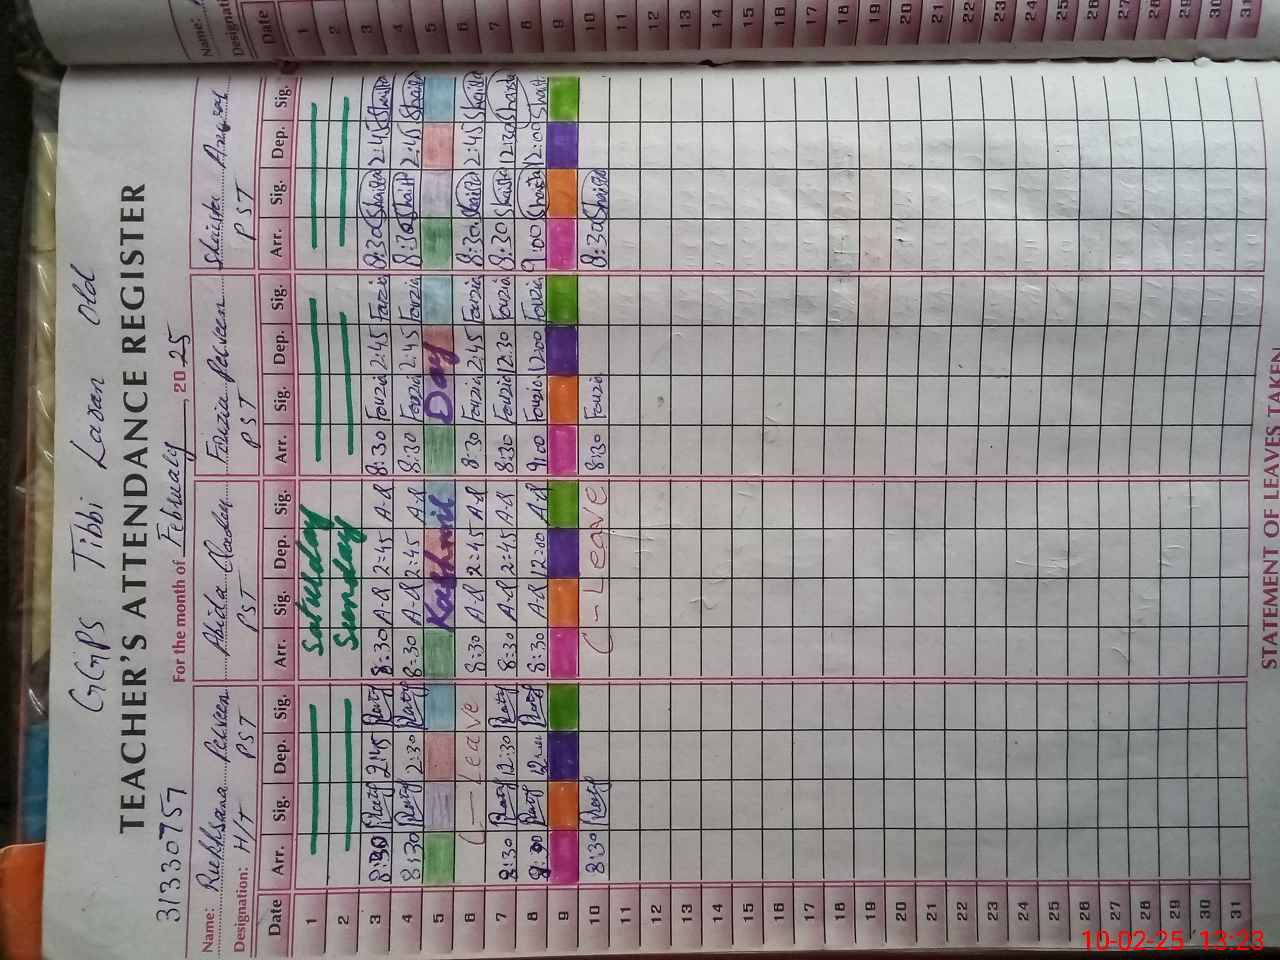 GGPS Tibbi Laran Old
TEACHER'S ATTENDANCE REGISTER
31330757 For the month of February, 2025
Name: Rukhsana Perveen Abida Fouzia Perveen Shaista
Designation: H/T PST PST PST PST
Date Arr. Sig. Dep. Sig. Arr. Sig. Dep. Sig. Arr. Sig. Dep. Sig. Arr. Sig. Dep. Sig.
1 Saturday
2 Sunday
3 8:30 2:45 8:30 A-R 2:45 A-R 8:30 Fouzia 2:45 Fouzia 8:30 Shaista 2:45 Shaista
4 8:30 2:30 8:30 A-R 2:45 A-R 8:30 Fouzia 2:45 Fouzia 8:30 Shaista 2:45 Shaista
5 Kashmir Day
6 C-Leave 8:30 A-R 2:45 A-R 8:30 Fouzia 2:45 Fouzia 8:30 Shaista 2:45 Shaista
7 8:30 12:30 8:30 A-R 2:45 A-R 8:30 Fouzia 12:30 Fouzia 8:30 Shaista 12:30 Shaista
8 8:30 A-R 12:00 A-R 9:00 Fouzia 12:00 Fouzia 9:00 Shaista 12:00 Shaista
9
10 8:30 C-Leave 8:30 Fouzia 8:30 Shaista
11
12
13
14
15
16
17
18
19
20
21
22
23
24
25
26
27
28
29
30
31
STATEMENT OF LEAVES TAKEN
Name:
Date
1
2
3
4
5
6
7
8
9
10
11
12
13
14
15
16
17
18
19
20
21
22
23
24
25
26
27
28
29
30
31
10-02-25 13:23